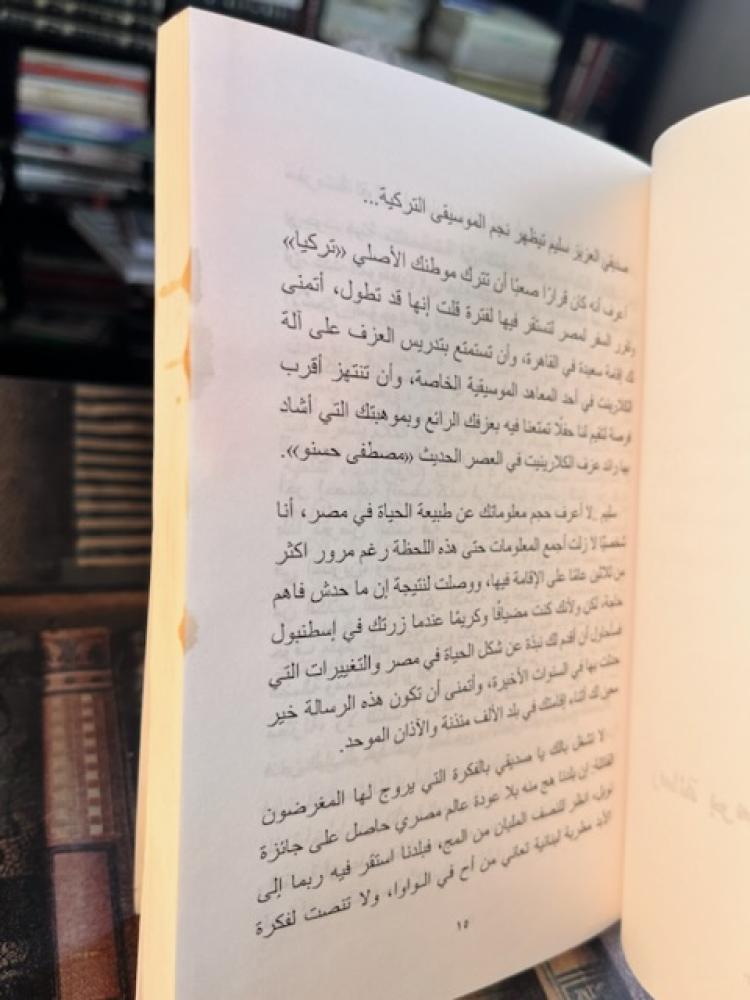 صديقي العزيز سليم تيظهر نجم الموسيقى التركية...
أعرف أنه كان قرارًا صعبًا أن تترك موطنك الأصلي «تركيا»
وتقرر السفر لمصر لتستقر فيها لفترة قلت إنها قد تطول، أتمنى
لك إقامة سعيدة في القاهرة، وأن تستمتع بتدريس العزف على آلة
الكلارينت في أحد المعاهد الموسيقية الخاصة، وأن تنتهز أقرب
فرصة لتقيم لنا حفلًا تمتعنا فيه بعزفك الرائع وبموهبتك التي أشاد
بها رائد عزف الكلارينيت في العصر الحديث «مصطفى حسنو».
سليم ..لا أعرف حجم معلوماتك عن طبيعة الحياة في مصر، أنا
شخصيًا لا زلت أجمع المعلومات حتى هذه اللحظة رغم مرور اكثر
من ثلاثين عامًا على الإقامة فيها، ووصلت لنتيجة إن ما حدش فاهم
حاجة، لكن ولأنك كنت مضيافًا وكريمًا عندما زرتك في إسطنبول
فسأحاول أن أقدم لك نبذة عن شكل الحياة في مصر والتغييرات التي
حلت بها في السنوات الأخيرة، وأتمنى أن تكون هذه الرسالة خير
معين لك أثناء إقامتك في بلد الألف مئذنة والآذان الموحد.
لا تشغل بالك يا صديقي بالفكرة التي يروج لها المغرضون
القائلة: إن بلدنا هج منه بلا عودة عالم مصري حاصل على جائزة
نوبل، انظر للنصف المليان من المج، فبلدنا استقر فيه ربما إلى
الأبد مطربة لبنانية تعاني من أح في الواوا، ولا تنصت لفكرة
١٥